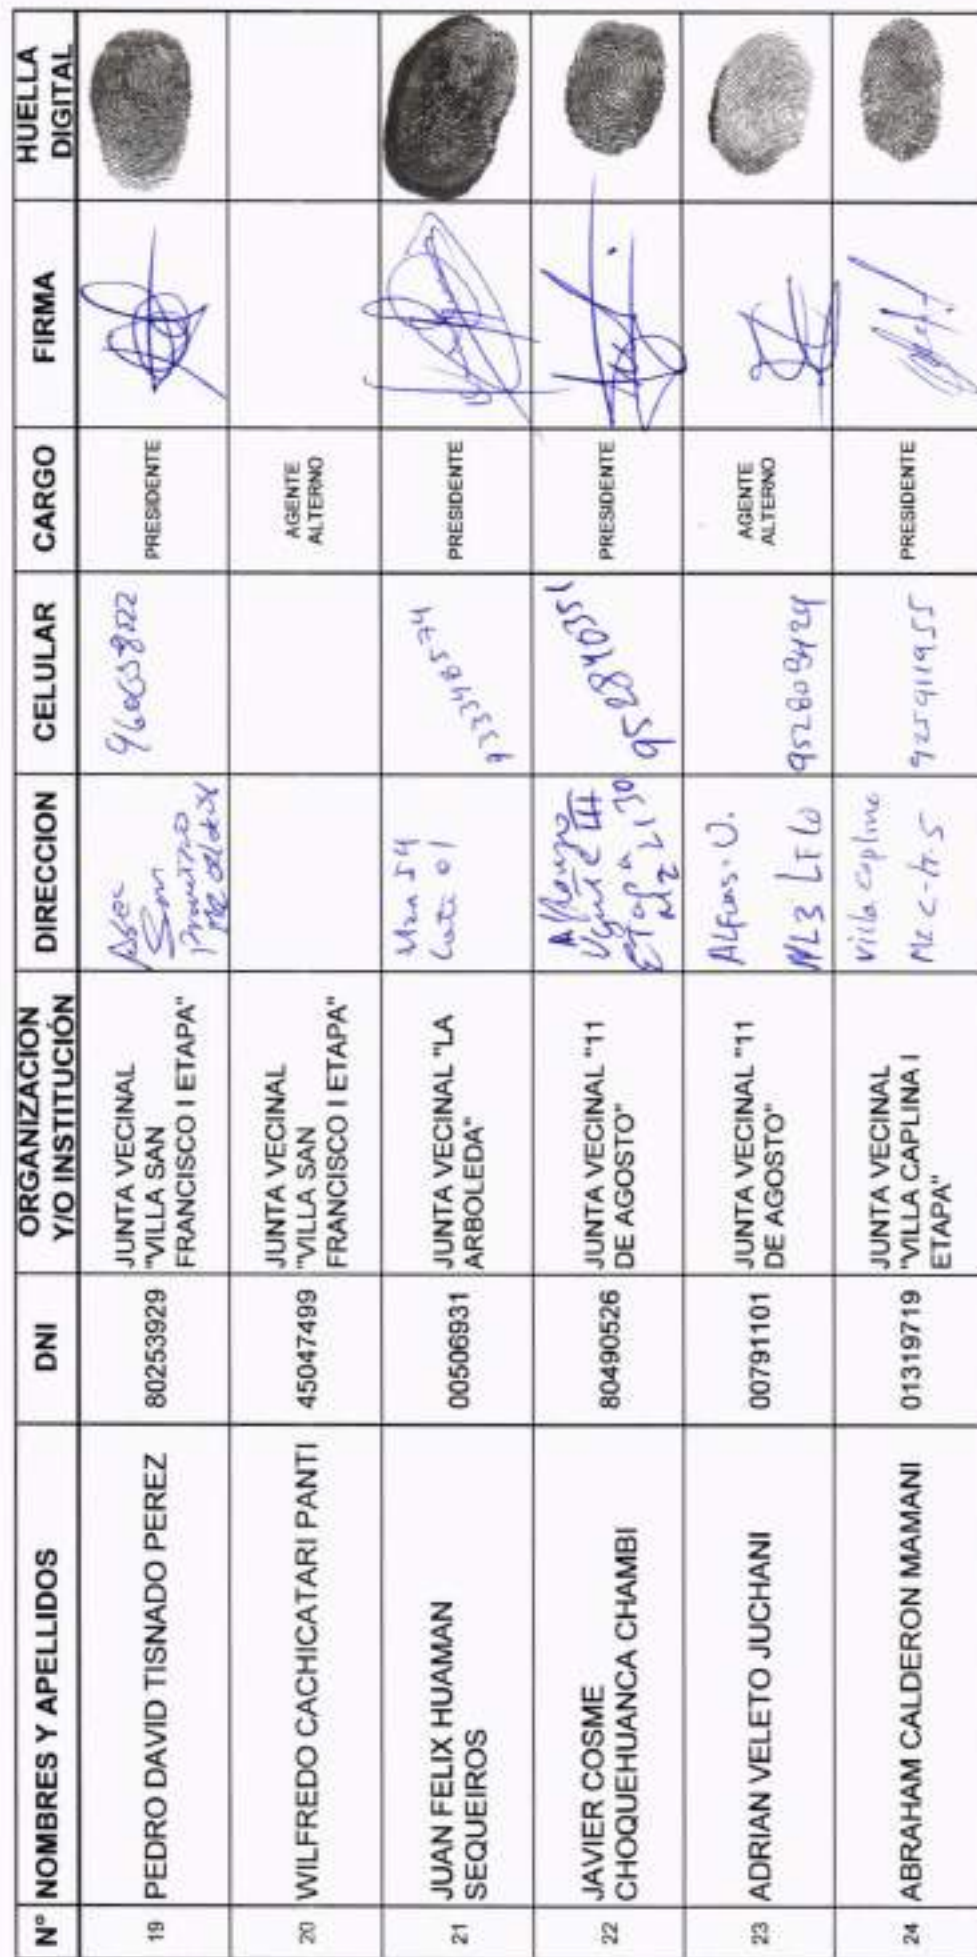 N° NOMBRES Y APELLIDOS DNI ORGANIZACION Y/O INSTITUCIÓN DIRECCION CELULAR CARGO FIRMA HUELLA DIGITAL
19 PEDRO DAVID TISNADO PEREZ 80253929 JUNTA VECINAL
"VILLA SAN
FRANCISCO I ETAPA"
PRESIDENTE
20 WILFREDO CACHICATARI PANTI 45047499 JUNTA VECINAL
"VILLA SAN
FRANCISCO I ETAPA"
AGENTE
ALTERNO
21 JUAN FELIX HUAMAN
SEQUEIROS
00506931 JUNTA VECINAL "LA
ARBOLEDA"
PRESIDENTE
22 JAVIER COSME
CHOQUEHUANCA CHAMBI
80490526 JUNTA VECINAL "11
DE AGOSTO"
PRESIDENTE
23 ADRIAN VELETO JUCHANI 00791101 JUNTA VECINAL "11
DE AGOSTO"
952809424
AGENTE
ALTERNO
24 ABRAHAM CALDERON MAMANI 01319719 JUNTA VECINAL
"VILLA CAPLINA I
ETAPA"
925911955
PRESIDENTE